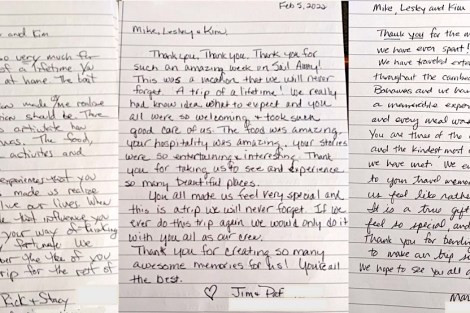 e and Kim
so very much for
of a lifetime you
at home the last
now made me realize
ion should be. There
articulate how
ues. The food,
activities and
experiences that you
made us realize
live our lives. When
that influence you
your way of thinking
fortunate we
ur the ten of you
rip for the rest of
Rick + Stacy
Feb 5, 2022
Mike, Lesley & Kim,
Thank you, Thank you, Thank you for
such an amazing week on Sail Away!
This was a vacation that we will never
forget. A trip of a lifetime! We really
had know idea what to expect and you
all were so welcoming & took such
good care of us. The food was amazing,
your hospitality was amazing, your stories
were so entertaining & interesting. Thank
you for taking us to see and experience
so many beautiful places.
You all made us feel very special and
this is a trip we will never forget. If we
ever do this trip again we would only do it
with you all as our crew.
Thank you for creating so many
awesome memories for us! You're all
the best.
♡ Jim &
Mike, Lesley and Kim
Thank you for the
we have ever spent!
We have traveled
throughout the
Bahamas and we
a memorable
and every meal
You are three of the
and the kindest most
we have met. We
to your travel
us feel like
It is a true gift
feel so special, and
Thank you for
to make our trip
We hope to see you all